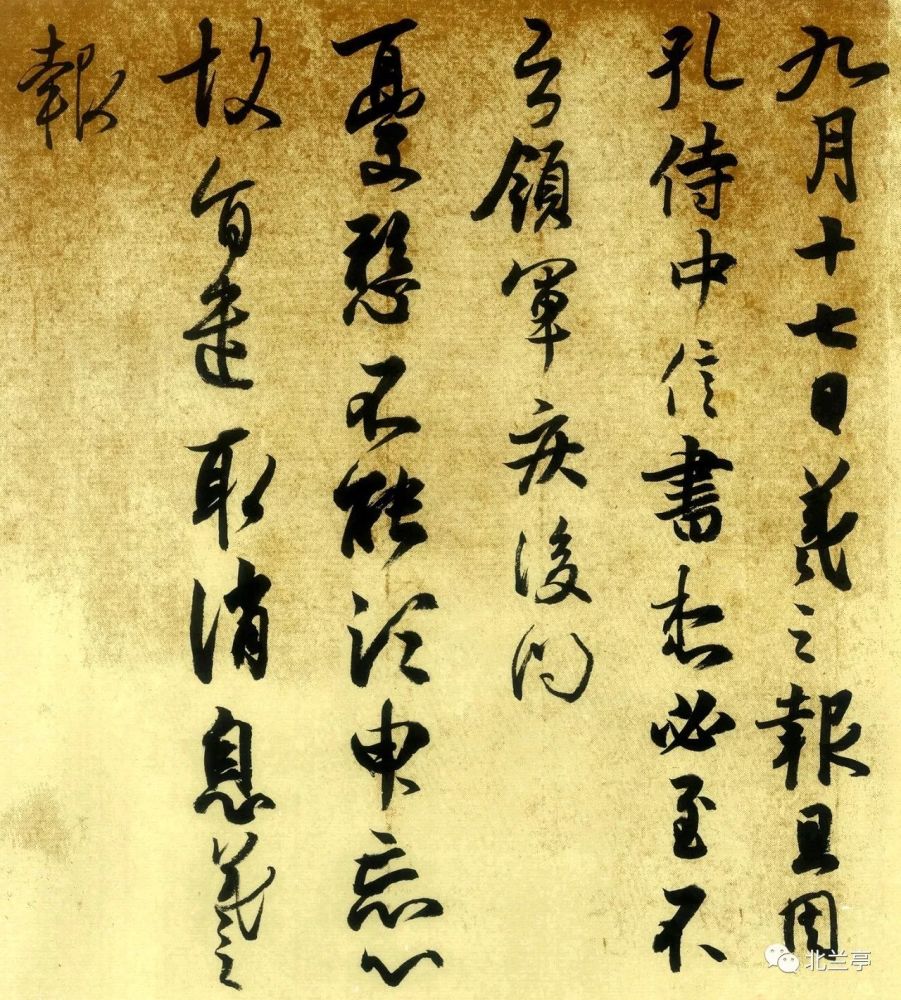 九月十七日羲之報且因
孔侍中信書想必至不
知領軍疾後問
憂懸不能須臾忘心
故旨遣取消息羲之
報
北兰亭